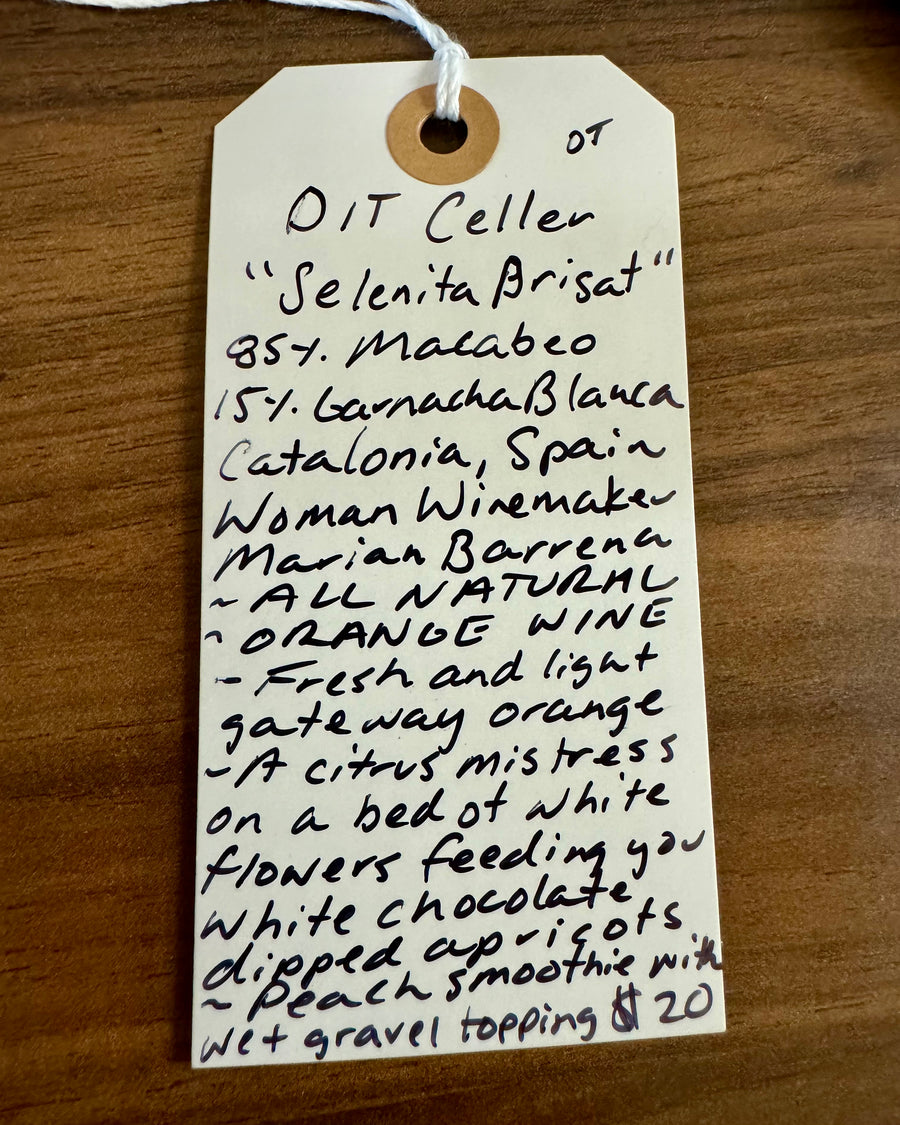 OT
DIT Celler
"Selenita Brisat"
85%. Macabeo
15%. Garnacha Blanca
Catalonia, Spain
Woman Winemaker
Marian Barrena
~ ALL NATURAL
~ ORANGE WINE
~ Fresh and light
gateway orange
~ A citrus mistress
on a bed of white
flowers feeding you
white chocolate
dipped apricots
~ Peach smoothie with
wet gravel topping $20